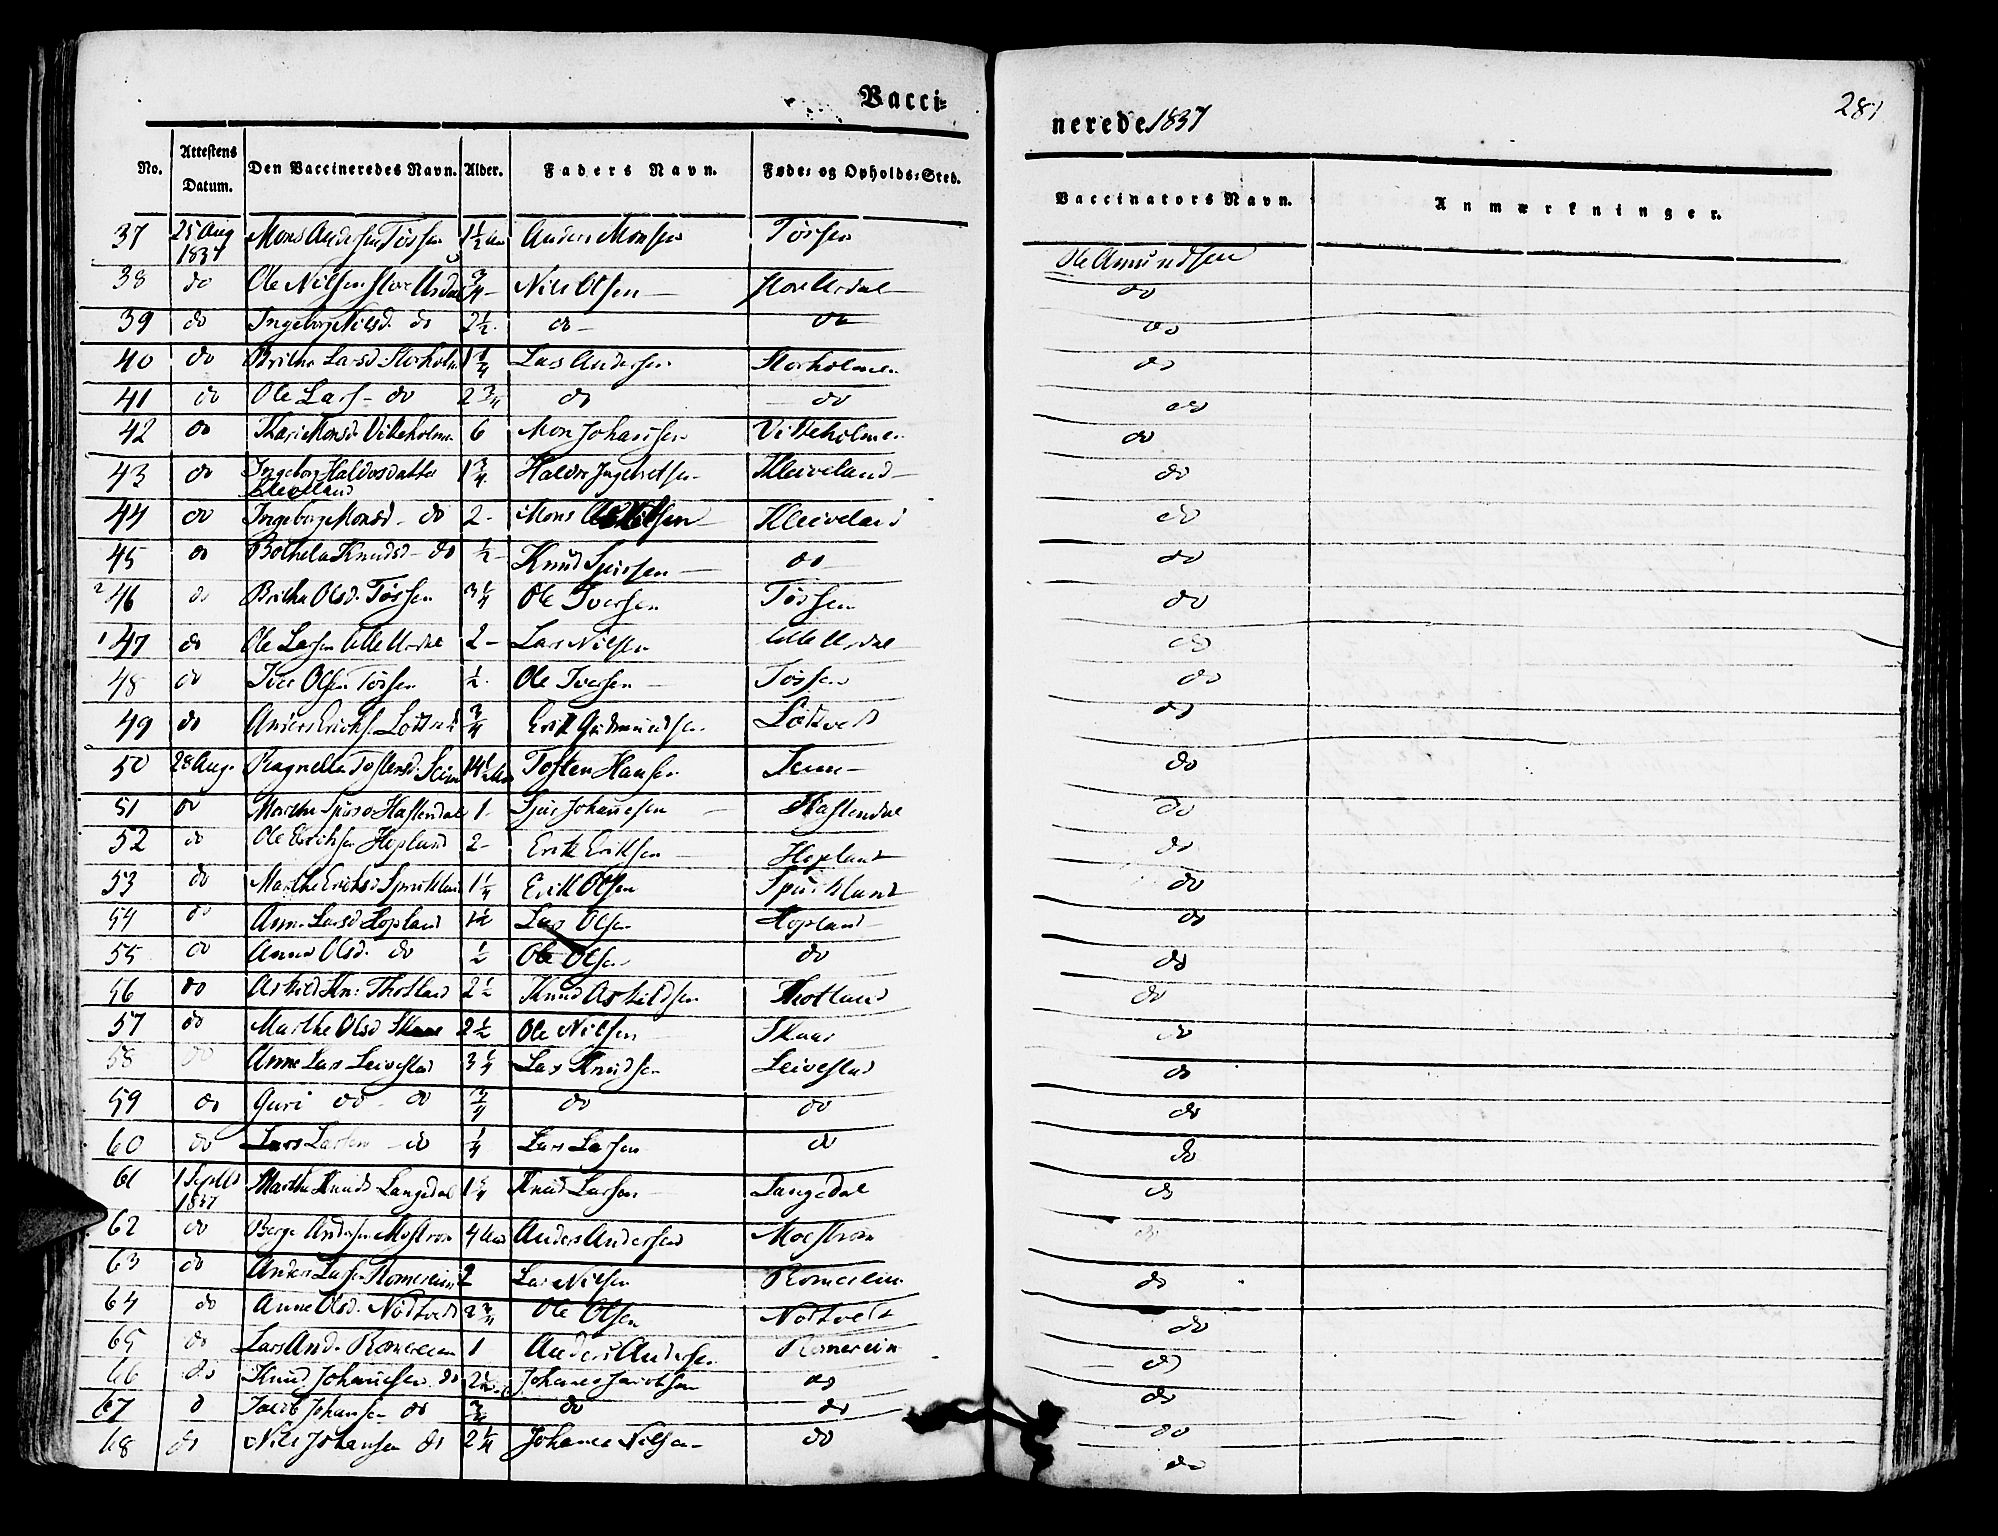 Vacci-
nerede 1837
281
No. Attestens Datum. Den Vaccineredes Navn. Alder. Faders Navn. Føde- og Opholds-Sted. Vaccinators Navn. Anmærkninger.
37 25 Aug 1837 Mons Andersen Tøssen 1 1/2 Anders Monsen Tøssen Ole Amundsen
38 do Ole Nilsen 3/4 Nils Olsen do
39 do Ingeborg Nilsd. do 2 1/2 do do do
40 do Brithe Larsd Storholm 1 1/4 Lars Andersen Storholmen do
41 do Ole Lars- do 2 3/4 do do do
42 do Mons d. Vikeholmen 6 Mon Johansen Vikeholmen do
43 do Ingeborg Haldorsdatter Kleveland 1 3/4 Haldor Kleiveland do
44 do Ingeborg Monsd- do 2 Mons Kleiveland do
45 do Knudsd- do 1/2 Knud do do
46 do Brithe Olsd. Tøssen 3 1/4 Ole Iversen Tøssen do
47 do Ole Larsen Lille Urdal 2 Lars Nilsen Lille Urdal do
48 do Iver Olsen Tøssen 1/2 Ole Iversen Tøssen do
49 do Anders Erichs. 3/4 Erik Gudmundsen do
50 28 Aug. Tostensd. Seim Tosten Hansen do
51 do Marthe 1 Sjur Johanesen do
52 do Ole Erichsen Hopland 2 Erik Eriksen Hopland do
53 do Marthe Erichsd 1 1/4 Erik Olsen do
54 do Anne Larsd Hopland 1 1/2 Lars Olsen Hopland do
55 do Anne Olsd. do 1/2 Ole Olsen do do
56 do Askild Kn: 2 1/2 Knud Askildsen do
57 do Marthe Olsd Skaar 2 1/2 Ole Nilsen Skaar do
58 do Anne Lars Leivestad 3 1/4 Lars Knudsen Leivestad do
59 do Guri do do 3/4 do do do
60 do Lars Larsen do 1/4 Lars Larsen do do
61 1 Septb 1837 Marthe Knuds Langedal 1 3/4 Knud Larsen Langedal do
62 do Andersen 4 Anders Andersen do
63 do Anders Larsen Romerein 2 Lars Nilsen Romerein do
64 do Anne Olsd. Nodtvedt 2 3/4 Ole Olsen Nodtvedt do
65 do Lars And. Romerein 1 Anders Andersen Romerein do
66 do Knud Johanesen do 2 1/2 Johanes Jacobsen do do
67 do Jacob Johansen do 3/4 do do do
68 do Nils Johansen do 2 1/4 Johanes Nilsen do do